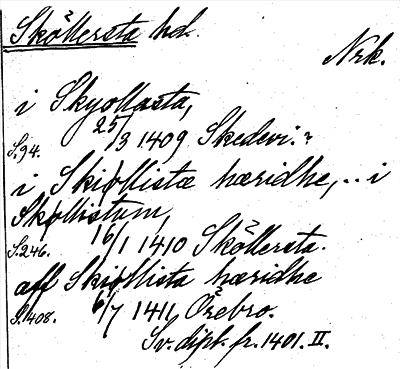 Sköllersta hd.
Nrk.
i Skyollasta,
S.94. 25/3 1409 Skedevi.
i Skiøllistæ hæridhe, ... i
Skøllistum,
S.246. 16/1 1410 Sköllersta.
aff Skiøllista hæridhe
S.408. 6/7 1411, Örebro.
Sv. dipl. fr. 1401. II.